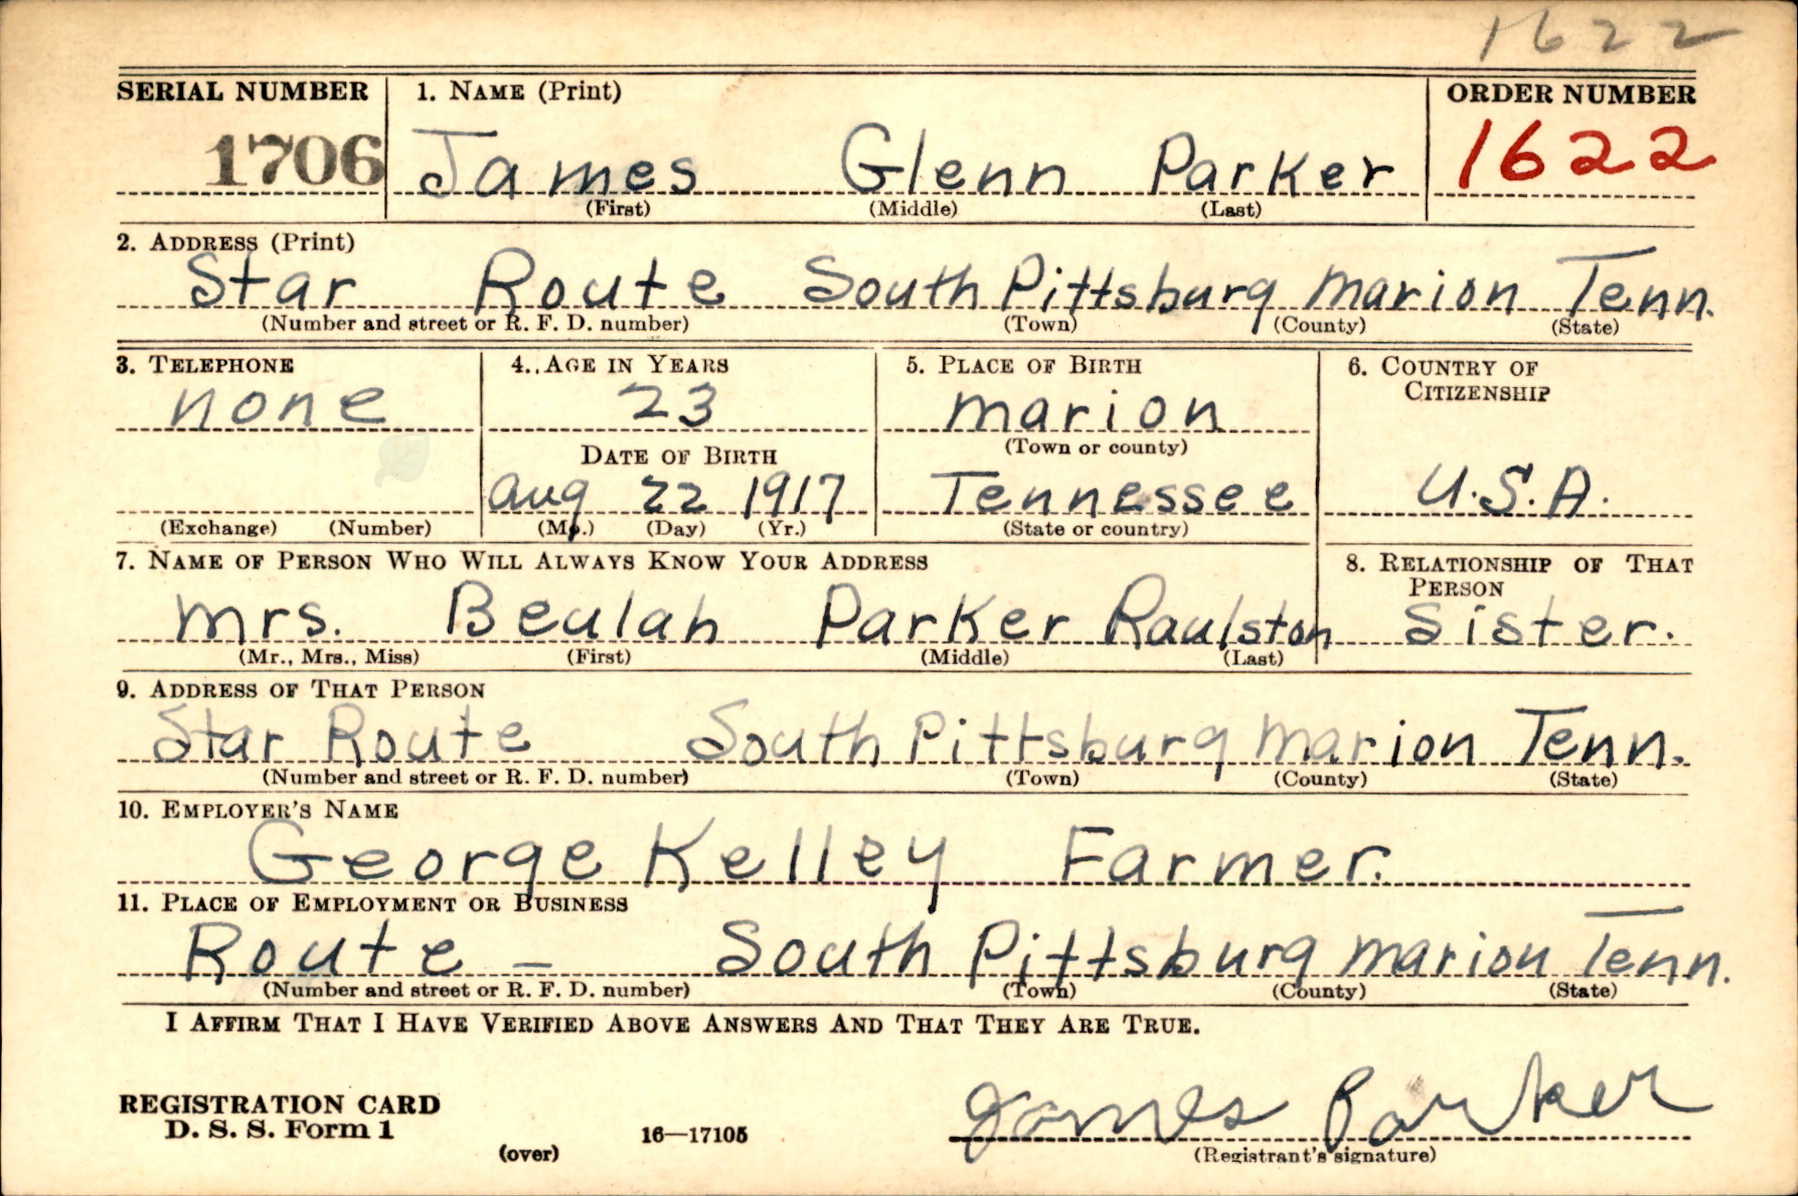 1622
SERIAL NUMBER 1. NAME (Print) ORDER NUMBER
1706 James Glenn Parker 1622
(First) (Middle) (Last)
2. ADDRESS (Print)
Star Route South Pittsburg Marion Tenn.
(Number and street or R. F. D. number) (Town) (County) (State)
3. TELEPHONE 4. AGE IN YEARS 5. PLACE OF BIRTH 6. COUNTRY OF
CITIZENSHIP
none 23 Marion
(Town or county)
DATE OF BIRTH
Aug 22 1917 Tennessee U.S.A.
(Exchange) (Number) (Mo.) (Day) (Yr.) (State or country)
7. NAME OF PERSON WHO WILL ALWAYS KNOW YOUR ADDRESS 8. RELATIONSHIP OF THAT
PERSON
Mrs. Beulah Parker Raulston Sister.
(Mr., Mrs., Miss) (First) (Middle) (Last)
9. ADDRESS OF THAT PERSON
Star Route South Pittsburg Marion Tenn.
(Number and street or R. F. D. number) (Town) (County) (State)
10. EMPLOYER'S NAME
George Kelley Farmer.
11. PLACE OF EMPLOYMENT OR BUSINESS
Route - South Pittsburg Marion Tenn.
(Number and street or R. F. D. number) (Town) (County) (State)
I AFFIRM THAT I HAVE VERIFIED ABOVE ANSWERS AND THAT THEY ARE TRUE.
James Parker
REGISTRATION CARD
D. S. S. Form 1
(over) 16—17105 (Registrant's signature)